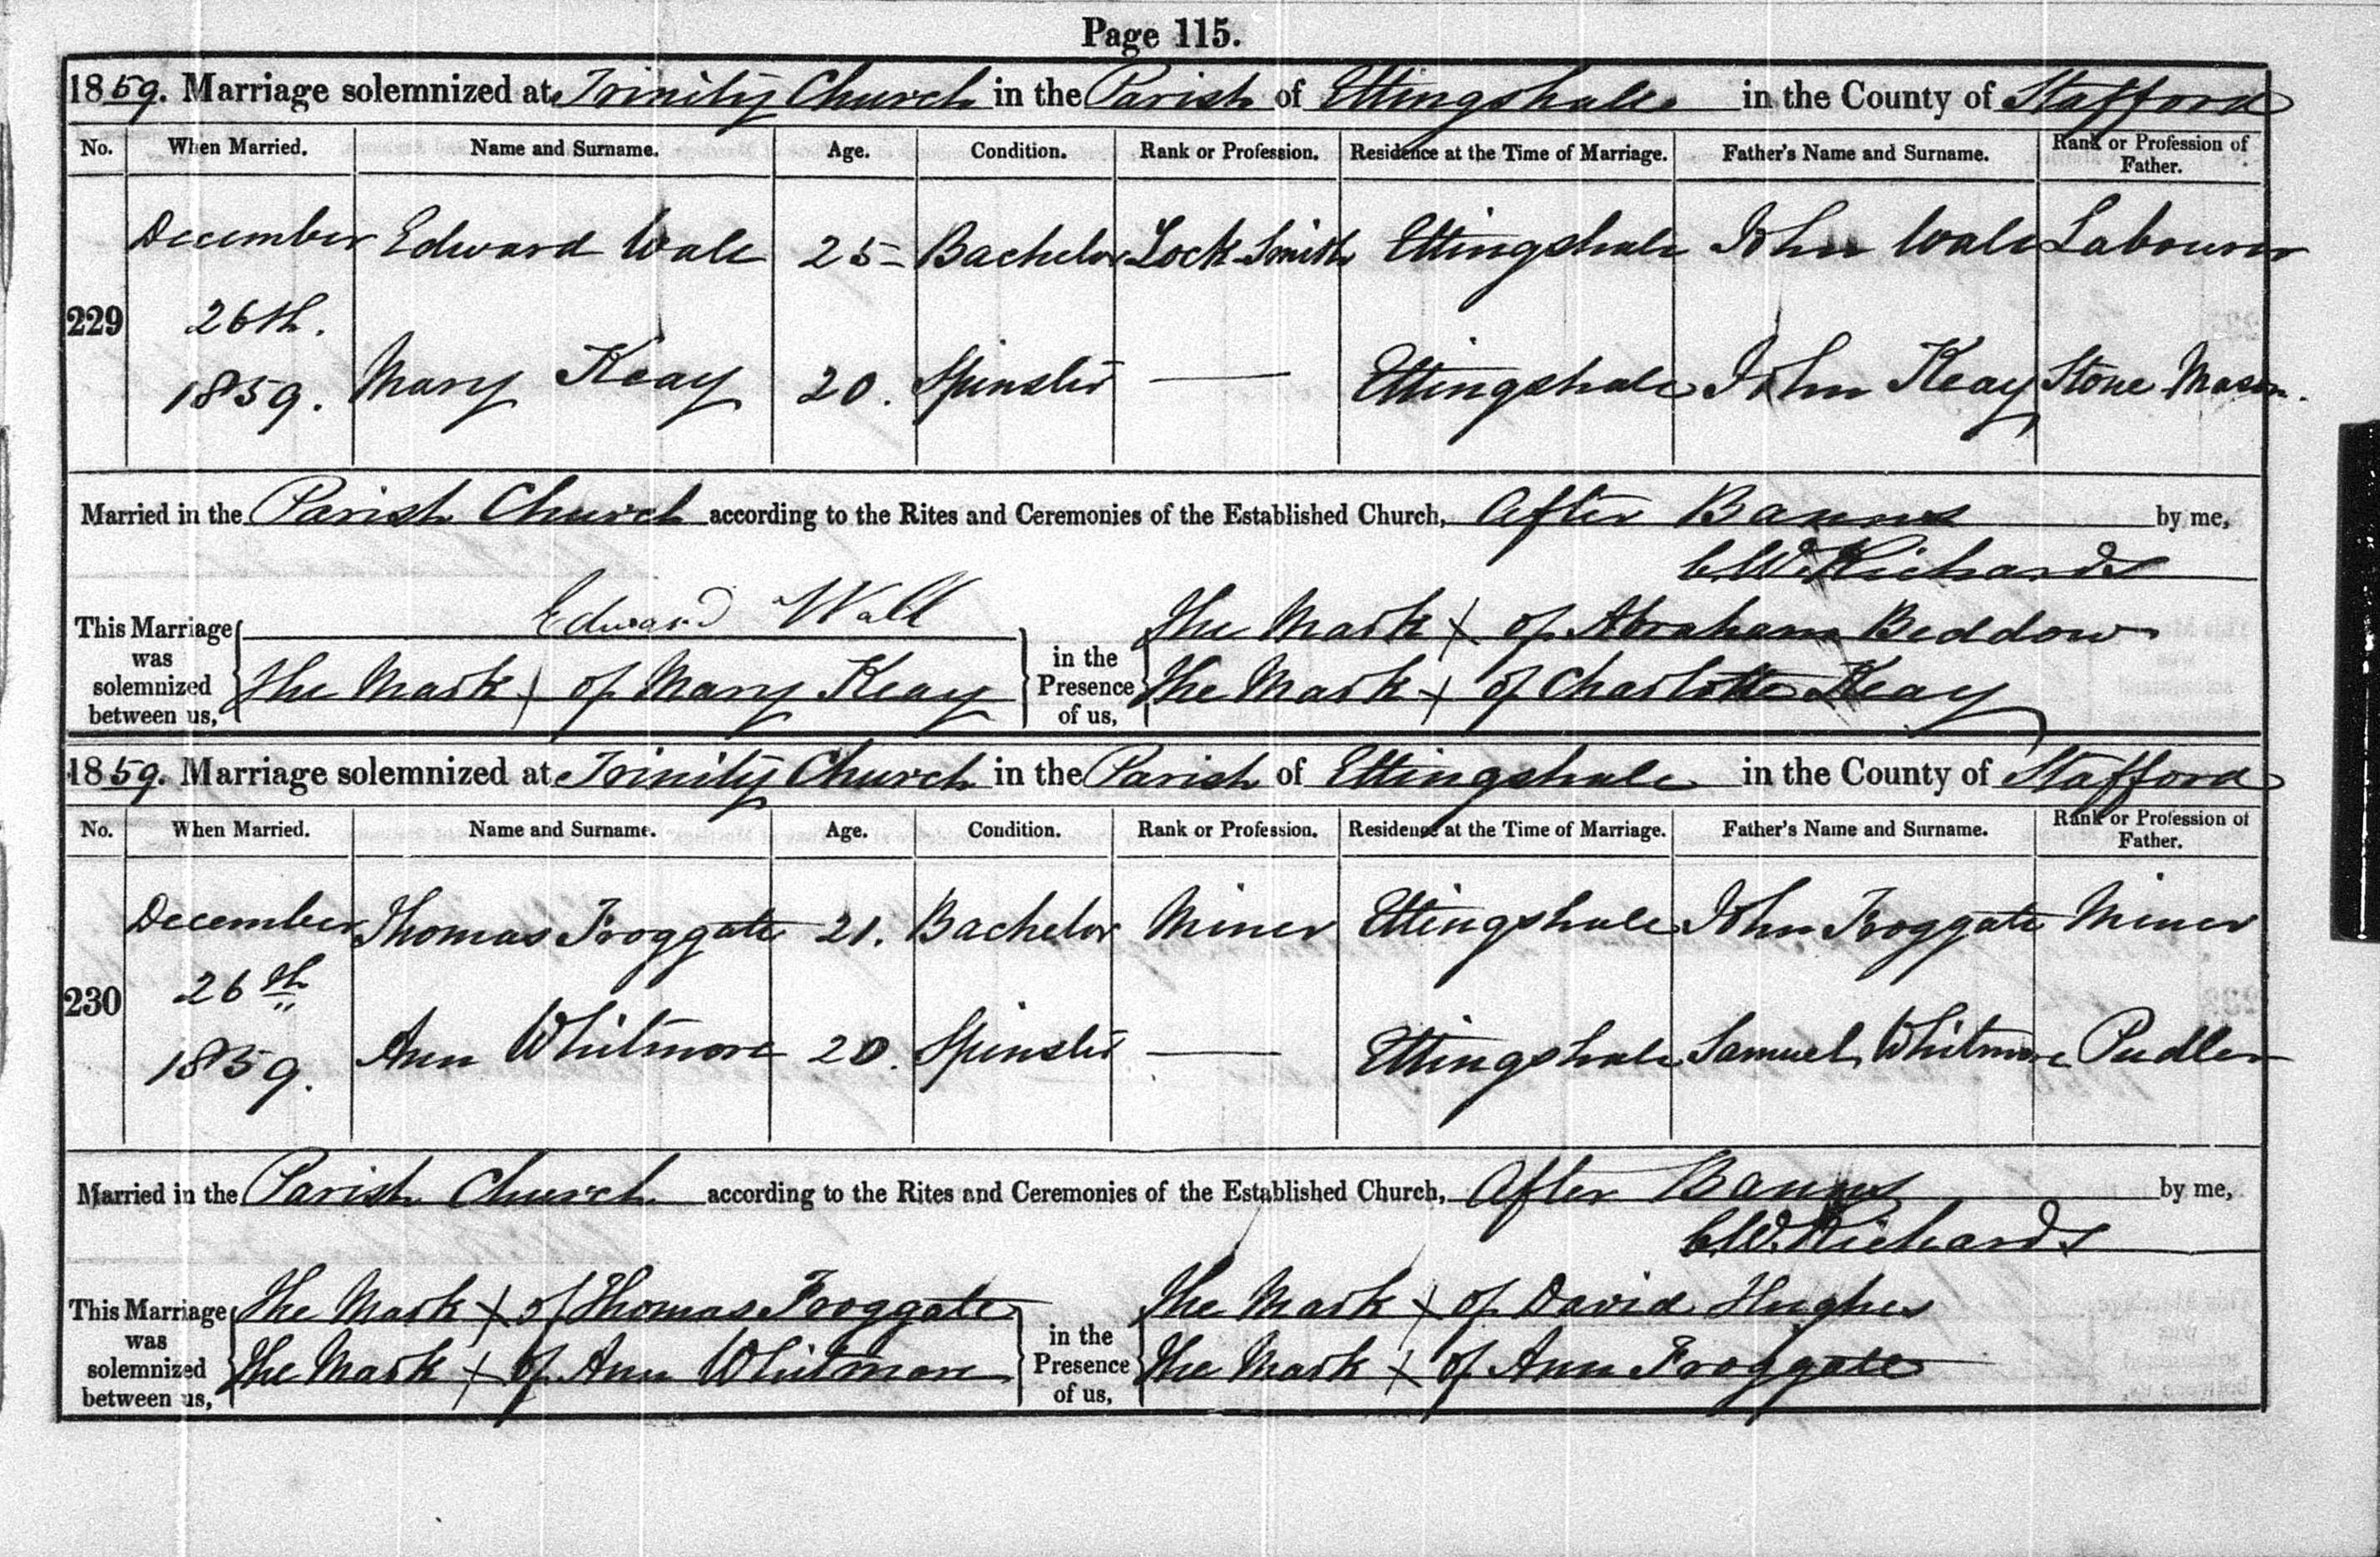 Page 115.
1859. Marriage solemnized at Trinity Church in the Parish of Ettingshale in the County of Stafford
No. When Married. Name and Surname. Age. Condition. Rank or Profession. Residence at the Time of Marriage. Father's Name and Surname. Rank or Profession of Father.
December Edward Wale 25 Bachelor Lock Smith Ettingshale John Wale Labourer
229 26th.
1859. Mary Keay 20. Spinster — Ettingshale John Keay Stone Mason.
Married in the Parish Church according to the Rites and Ceremonies of the Established Church, After Banns by me,
C.W. Richards
This Marriage was solemnized between us, Edward Wall
The Mark X of Mary Keay
in the Presence of us, The Mark X of Abraham Beddow
The Mark X of Charlotte Keay
1859. Marriage solemnized at Trinity Church in the Parish of Ettingshale in the County of Stafford
No. When Married. Name and Surname. Age. Condition. Rank or Profession. Residence at the Time of Marriage. Father's Name and Surname. Rank or Profession of Father.
December Thomas Froggate 21. Bachelor Miner Ettingshale John Froggate Miner
230 26th
1859. Ann Whitmore 20. Spinster — Ettingshale Samuel Whitmore Pudler
Married in the Parish Church according to the Rites and Ceremonies of the Established Church, After Banns by me,
C.W. Richards
This Marriage was solemnized between us, The Mark X of Thomas Froggate
The Mark X of Ann Whitmore
in the Presence of us, The Mark X of David Hughes
The Mark X of Ann Froggate